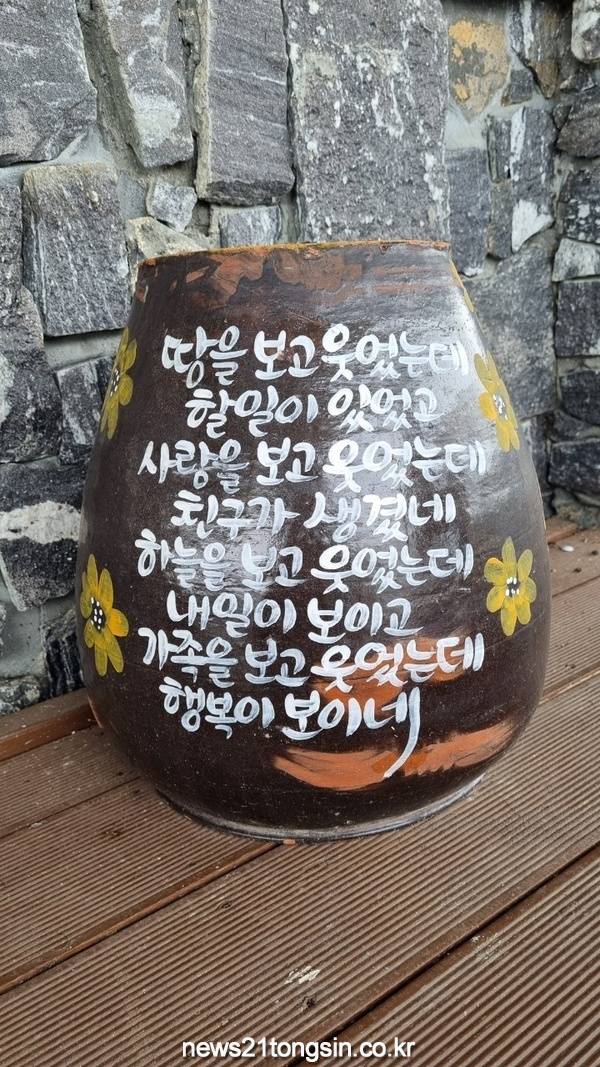 땅을 보고 웃었는데
할일이 있었고
사랑을 보고 웃었는데
친구가 생겼네
하늘을 보고 웃었는데
내일이 보이고
가족을 보고 웃었는데
행복이 보이네
news21tongsin.co.kr